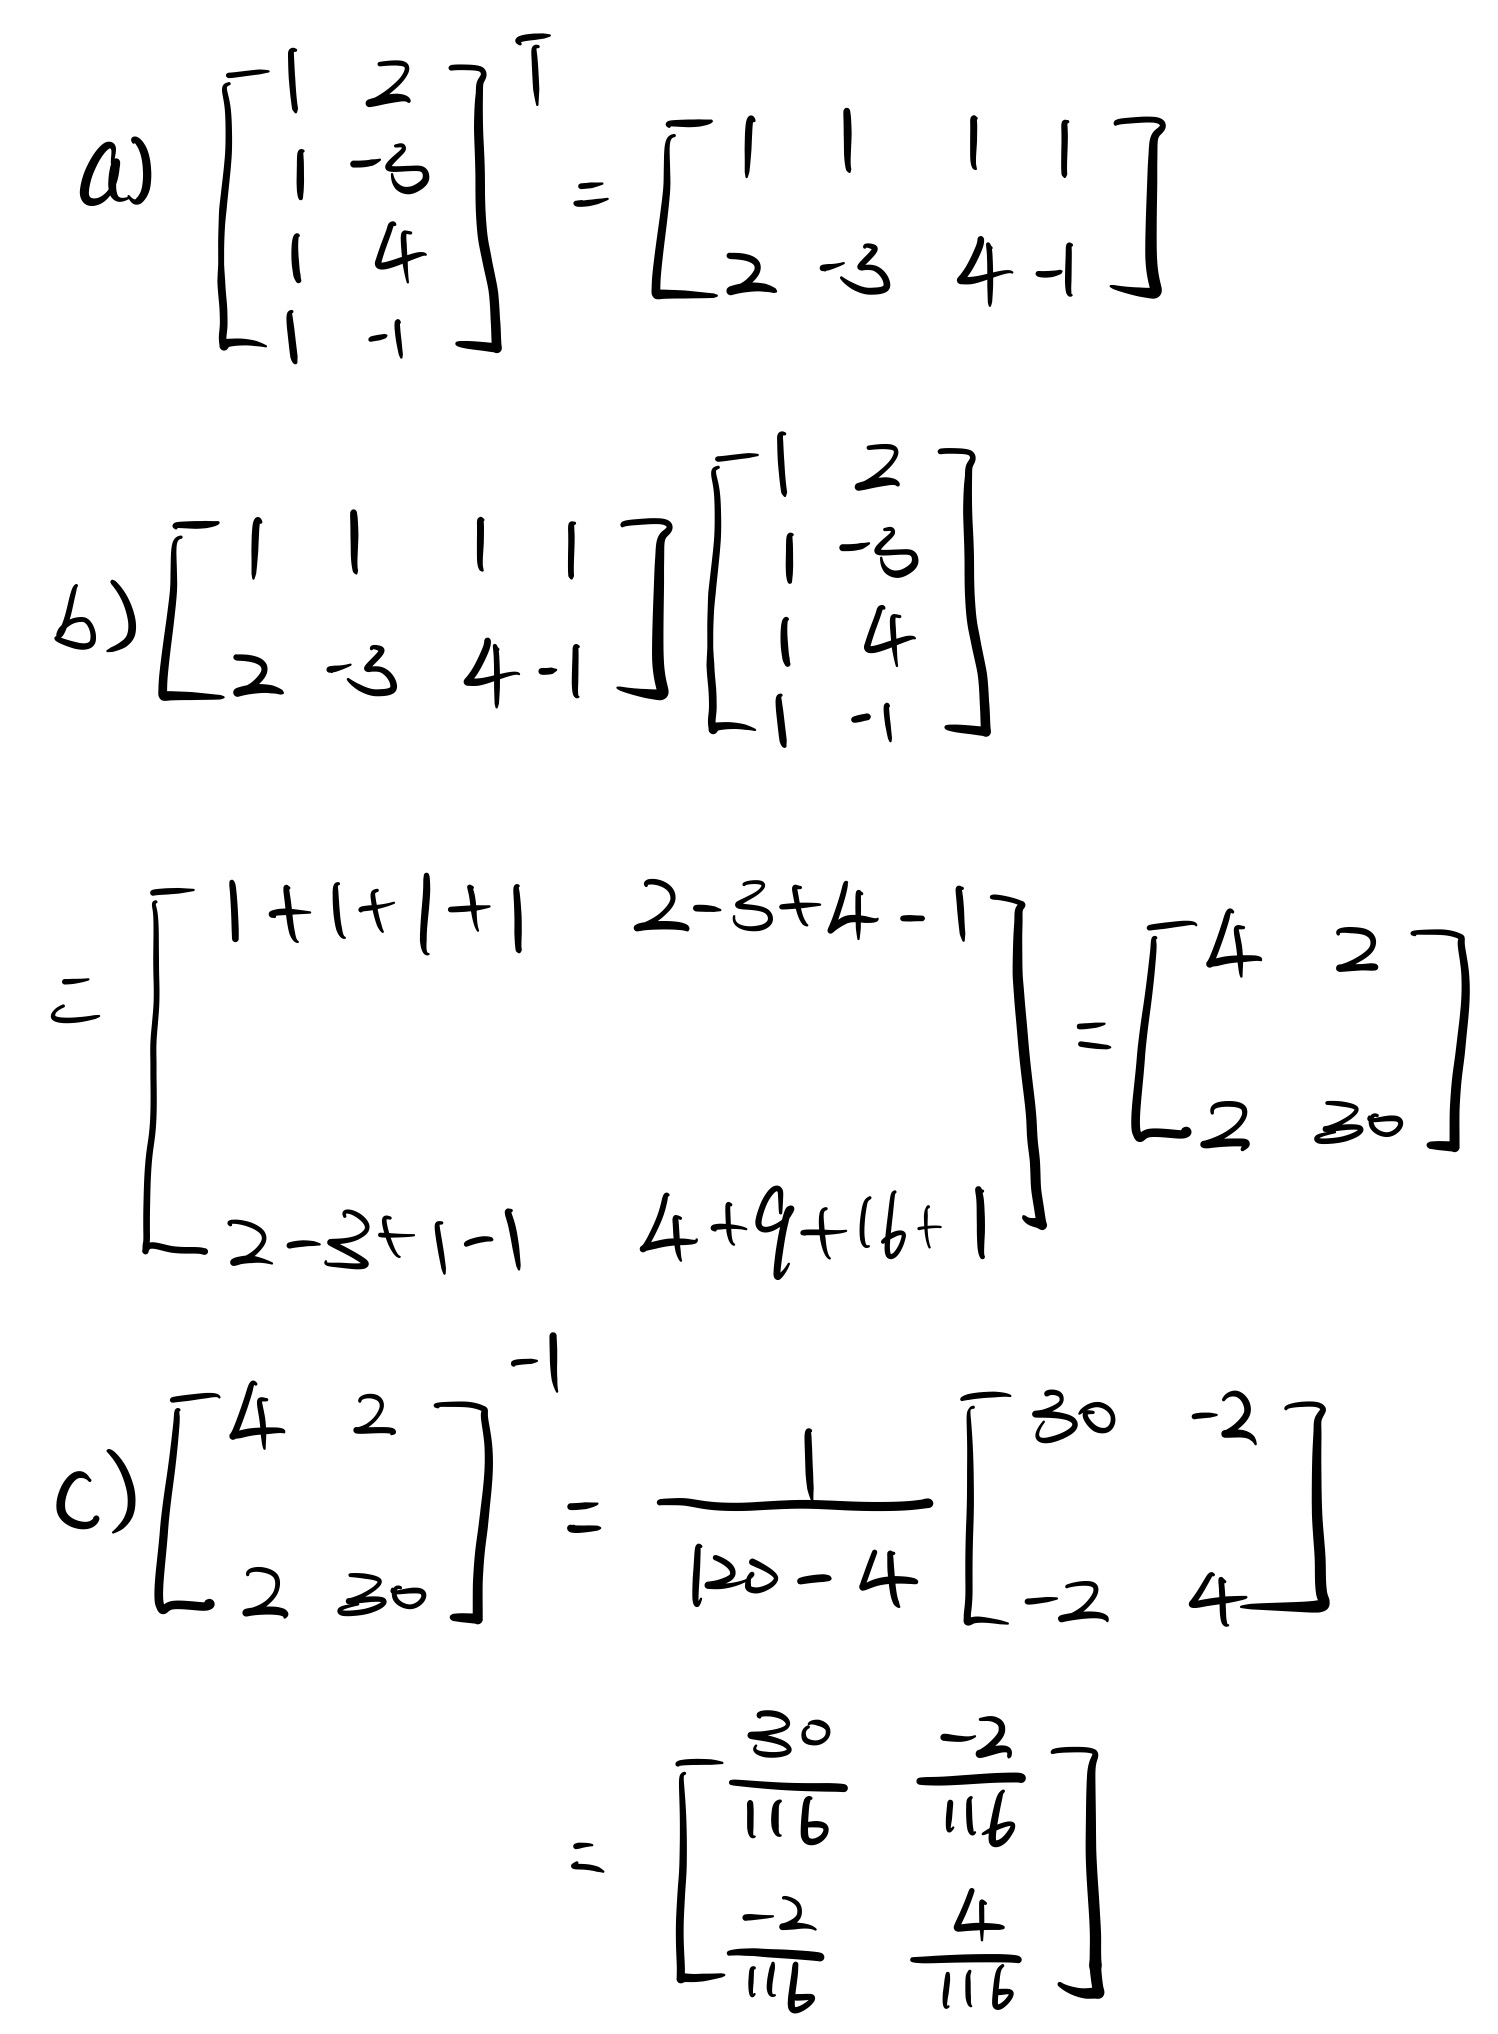 a) [1 2; 1 -3; 1 4; 1 -1]^T = [1 1 1 1; 2 -3 4 -1]
b) [1 1 1 1; 2 -3 4 -1] [1 2; 1 -3; 1 4; 1 -1]
= [1+1+1+1 2-3+4-1; 2-3+1-1 4+9+16+1] = [4 2; 2 30]
c) [4 2; 2 30]^-1 = 1/(120-4) [30 -2; -2 4]
= [30/116 -2/116; -2/116 4/116]